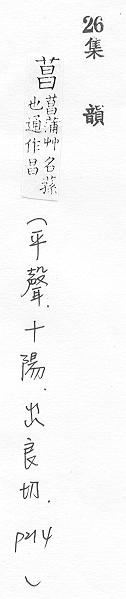 26集 韻
菖菖蒲艸名蓀
也通作昌
(平聲.十陽.出良切.
P214)